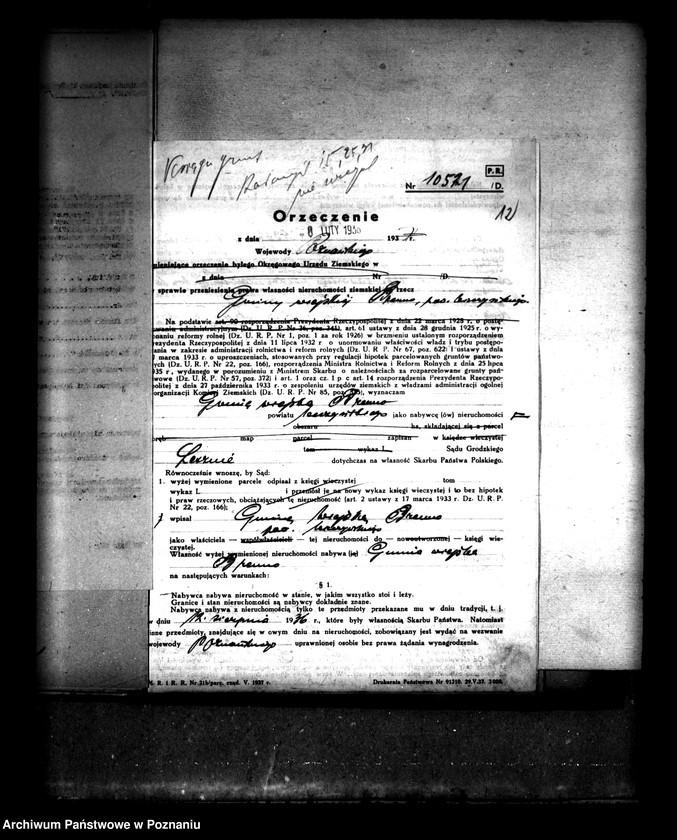 P. R.
Nr 10521 /D.
12)
Orzeczenie
8 LUTY 1938
z dnia 193 r.
Wojewody Poznańskiego
mieniające orzeczenie byłego Okręgowego Urzędu Ziemskiego w
z dnia Nr /D.
sprawie przeniesienia prawa własności nieruchomości ziemskiej na rzecz
Gminy wiejskiej Brenno, pow. leszczyńskiego.
Na podstawie art. 90 rozporządzenia Prezydenta Rzeczypospolitej z dnia 22 marca 1928 r. o postę-
powaniu administracyjnym (Dz. U. R. P. Nr 36, poz. 341), art. 61 ustawy z dnia 28 grudnia 1925 r. o wy-
konaniu reformy rolnej (Dz. U. R. P. Nr 1, poz. 1 za rok 1926) w brzmieniu ustalonym rozporządzeniem
rezydenta Rzeczypospolitej z dnia 11 lipca 1932 r. o unormowaniu właściwości władz i trybu postępo-
wania w zakresie administracji rolnictwa i reform rolnych (Dz. U. R. P. Nr 67, poz. 622) i ustawy z dnia
marca 1933 r. o uproszczeniach, stosowanych przy regulacji hipotek parcelowanych gruntów państwo-
wych (Dz. U. R. P. Nr 22, poz. 166), rozporządzenia Ministra Rolnictwa i Reform Rolnych z dnia 25 lipca
935 r., wydanego w porozumieniu z Ministrem Skarbu o należnościach za rozparcelowane grunty pań-
stwowe (Dz. U. R. P. Nr 57, poz. 372) i art. 1 oraz cz. 1 p c art. 14 rozporządzenia Prezydenta Rzeczypo-
spolitej z dnia 27 października 1933 r. o zespoleniu urzędów ziemskich z władzami administracji ogólnej
organizacji Komisyj Ziemskich (Dz. U. R. P. Nr 85, poz. 635), wyznaczam
Gminę wiejską Brenno
powiatu leszczyńskiego jako nabywcę (ów) nieruchomości
obszaru ha, składającej się z parcel
map parcel zapisan w księdze wieczystej
tom wykaz L. Sądu Grodzkiego
Lesznie dotychczas na własność Skarbu Państwa Polskiego.
Równocześnie wnoszę, by Sąd:
1. wyżej wymienione parcele odpisał z księgi wieczystej tom
wykaz L. i przeniósł je na nowy wykaz księgi wieczystej i to bez hipotek
i praw rzeczowych, obciążających tę nieruchomość (art. 2 ustawy z 17 marca 1933 r. Dz. U. R. P
Nr 22, poz. 166);
wpisał Gminę wiejską Brenno
pow. leszczyńskiego
jako właściciela — współwłaścicieli — tej nieruchomości do — nowoutworzonej — księgi wie-
czystej.
Własność wyżej wymienionej nieruchomości nabywa (ją) Gmina wiejska
Brenno
na następujących warunkach:
§ 1.
Nabywca nabywa nieruchomość w stanie, w jakim wszystko stoi i leży.
Granice i stan nieruchomości są nabywcy dokładnie znane.
Nabywca nabywa z nieruchomością tylko te przedmioty przekazane mu w dniu tradycji, t. j.
w dniu sierpnia 1936 r., które były własnością Skarbu Państwa. Natomiast
inne przedmioty, znajdujące się w owym dniu na nieruchomości, zobowiązany jest wydać na wezwanie
wojewody Poznańskiego uprawnionej osobie bez prawa żądania wynagrodzenia.
M. R. i R. R. Nr 21b/parc. rząd. V. 1937 r. Drukarnia Państwowa Nr 91310. 29.V.37. 3000.
Archiwum Państwowe w Poznaniu